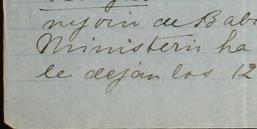 de Bab
Ministerii ha
le dejan los 12